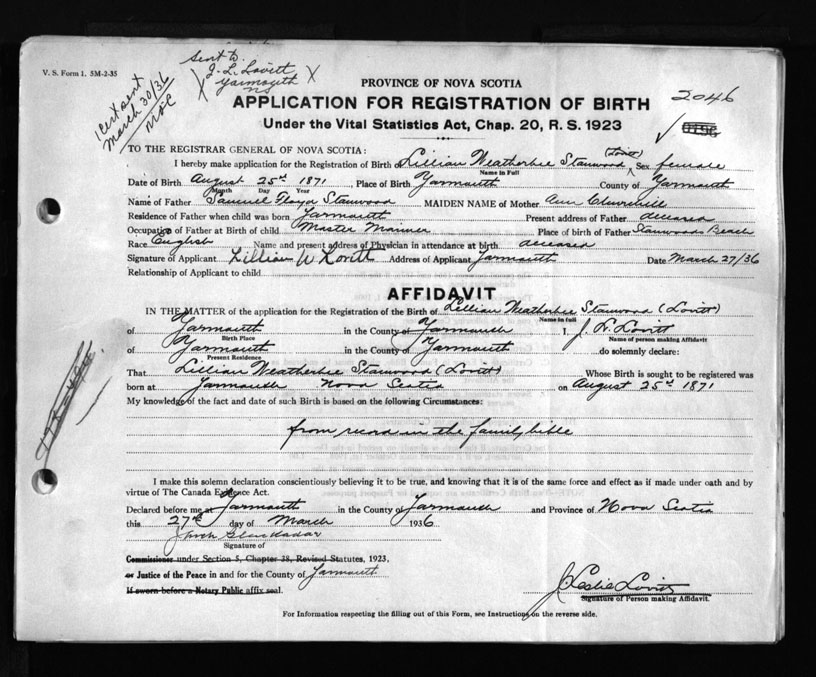 V. S. Form 1. 5M-2-35
1 cert sent
March 30/36
sent to
J. L. Lovitt
Yarmouth
NS
PROVINCE OF NOVA SCOTIA
APPLICATION FOR REGISTRATION OF BIRTH
Under the Vital Statistics Act, Chap. 20, R. S. 1923
2046
TO THE REGISTRAR GENERAL OF NOVA SCOTIA:
I hereby make application for the Registration of Birth of Lillian Weatherbee Stanwood (Lovitt) Sex female
Name in Full
Date of Birth August 25th 1871, Place of Birth Yarmouth County of Yarmouth
Month Day Year
Name of Father Samuel Floyd Stanwood MAIDEN NAME of Mother Ann Churchill
Residence of Father when child was born Yarmouth Present address of Father deceased
Occupation of Father at Birth of child Master Mariner Place of birth of Father Stanwoods Beach
Race English Name and present address of Physician in attendance at birth deceased
Signature of Applicant Lillian W Lovitt Address of Applicant Yarmouth Date March 27/36
Relationship of Applicant to child
AFFIDAVIT
IN THE MATTER of the application for the Registration of the Birth of Lillian Weatherbee Stanwood (Lovitt)
Name in full
of Yarmouth in the County of Yarmouth I, J. L. Lovitt
Birth Place Name of person making Affidavit
of Yarmouth in the County of Yarmouth do solemnly declare:
Present Residence
That Lillian Weatherbee Stanwood (Lovitt) Whose Birth is sought to be registered was
born at Yarmouth Nova Scotia on August 25th 1871
My knowledge of the fact and date of such Birth is based on the following Circumstances:
from record in the family bible
I make this solemn declaration conscientiously believing it to be true, and knowing that it is of the same force and effect as if made under oath and by
virtue of The Canada Evidence Act.
Declared before me at Yarmouth in the County of Yarmouth and Province of Nova Scotia
this 27th day of March 1936
Signature of
Commissioner under Section 5, Chapter 38, Revised Statutes, 1923,
or Justice of the Peace in and for the County of Yarmouth
If sworn before a Notary Public affix seal.
J. Leslie Lovitt
Signature of Person making Affidavit.
For Information respecting the filling out of this Form, see Instructions on the reverse side.